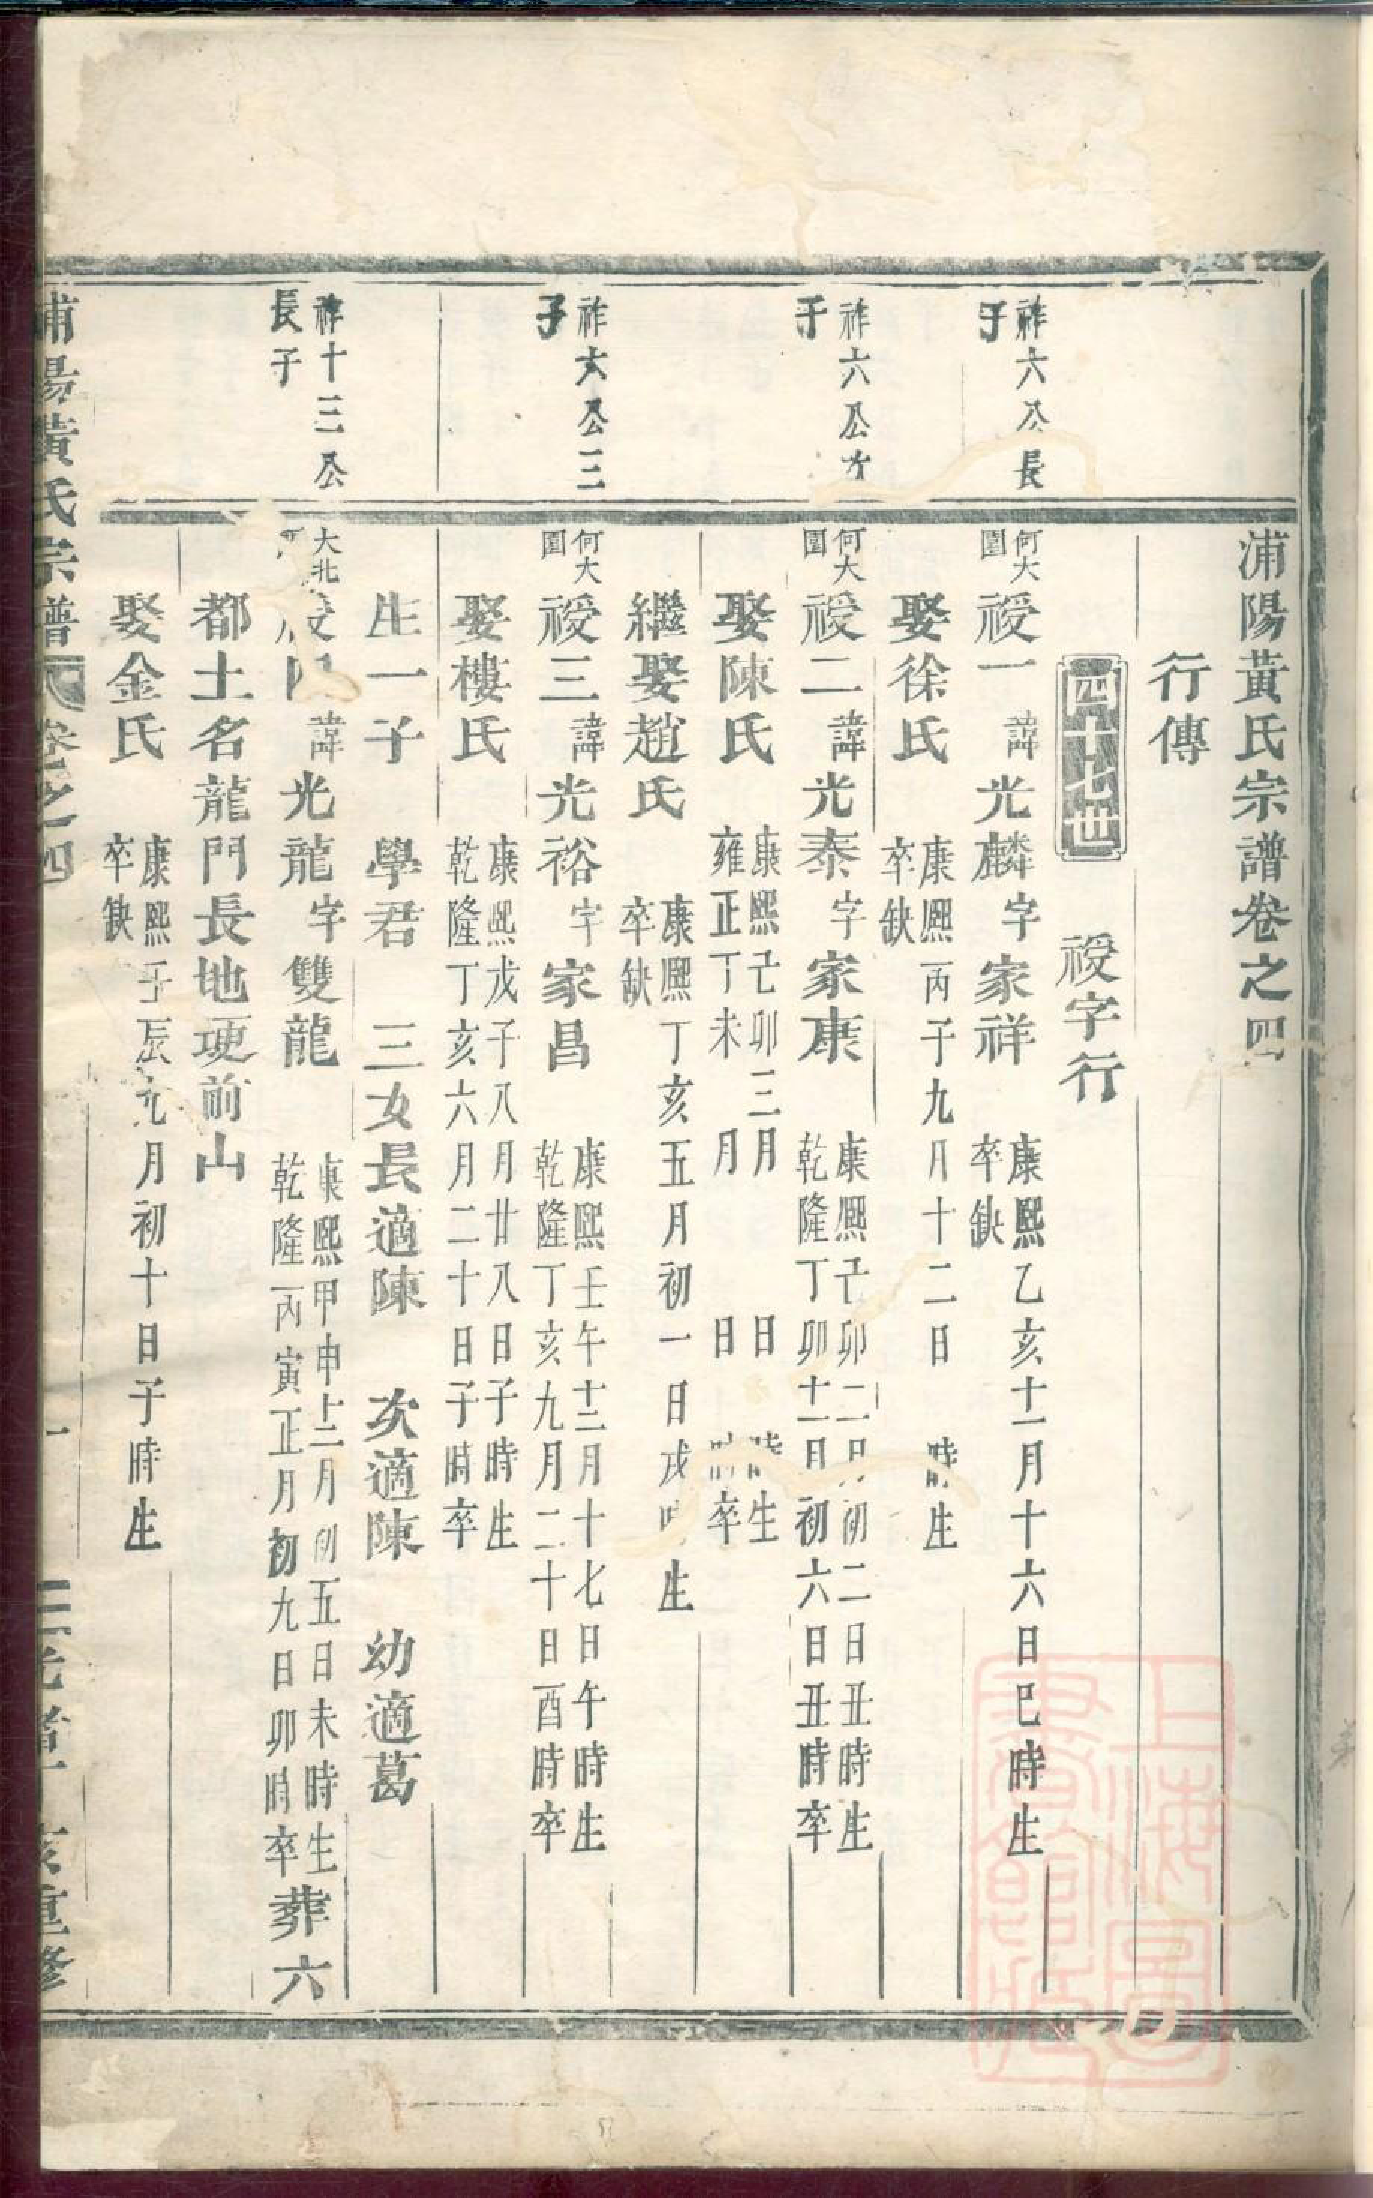 浦陽黃氏宗譜卷之四
行傳
四十七世 祾字行
祚六公長
子
何大
園
祾一 諱光麟字家祥
康熙乙亥十一月十六日巳時生
卒缺
娶徐氏
康熙丙子九月十二日 時生
卒缺
祚六公次
子
何大
園
祾二 諱光泰字家康
康熙己卯二月初二日丑時生
乾隆丁卯十一月初六日丑時卒
娶陳氏
康熙己卯三月 日 時生
雍正丁未 月 日 時卒
繼娶趙氏
康熙丁亥五月初一日戌時生
卒缺
祚六公三
子
何大
園
祾三 諱光裕字家昌
康熙壬午十二月十七日午時生
乾隆丁亥九月二十日酉時卒
娶樓氏
康熙戊子八月廿八日子時生
乾隆丁亥六月二十日子時卒
生一子 學君 三女長適陳 次適陳 幼適葛
祚十三公
長子
大北
諱光龍字雙龍
康熙甲申十二月初五日未時生
乾隆丙寅正月初九日卯時卒
葬六
都土名龍門長地硬前山
娶金氏
康熙壬辰九月初十日子時生
卒缺
浦陽黃氏宗譜 卷之四 一 重修
上海圖書館藏